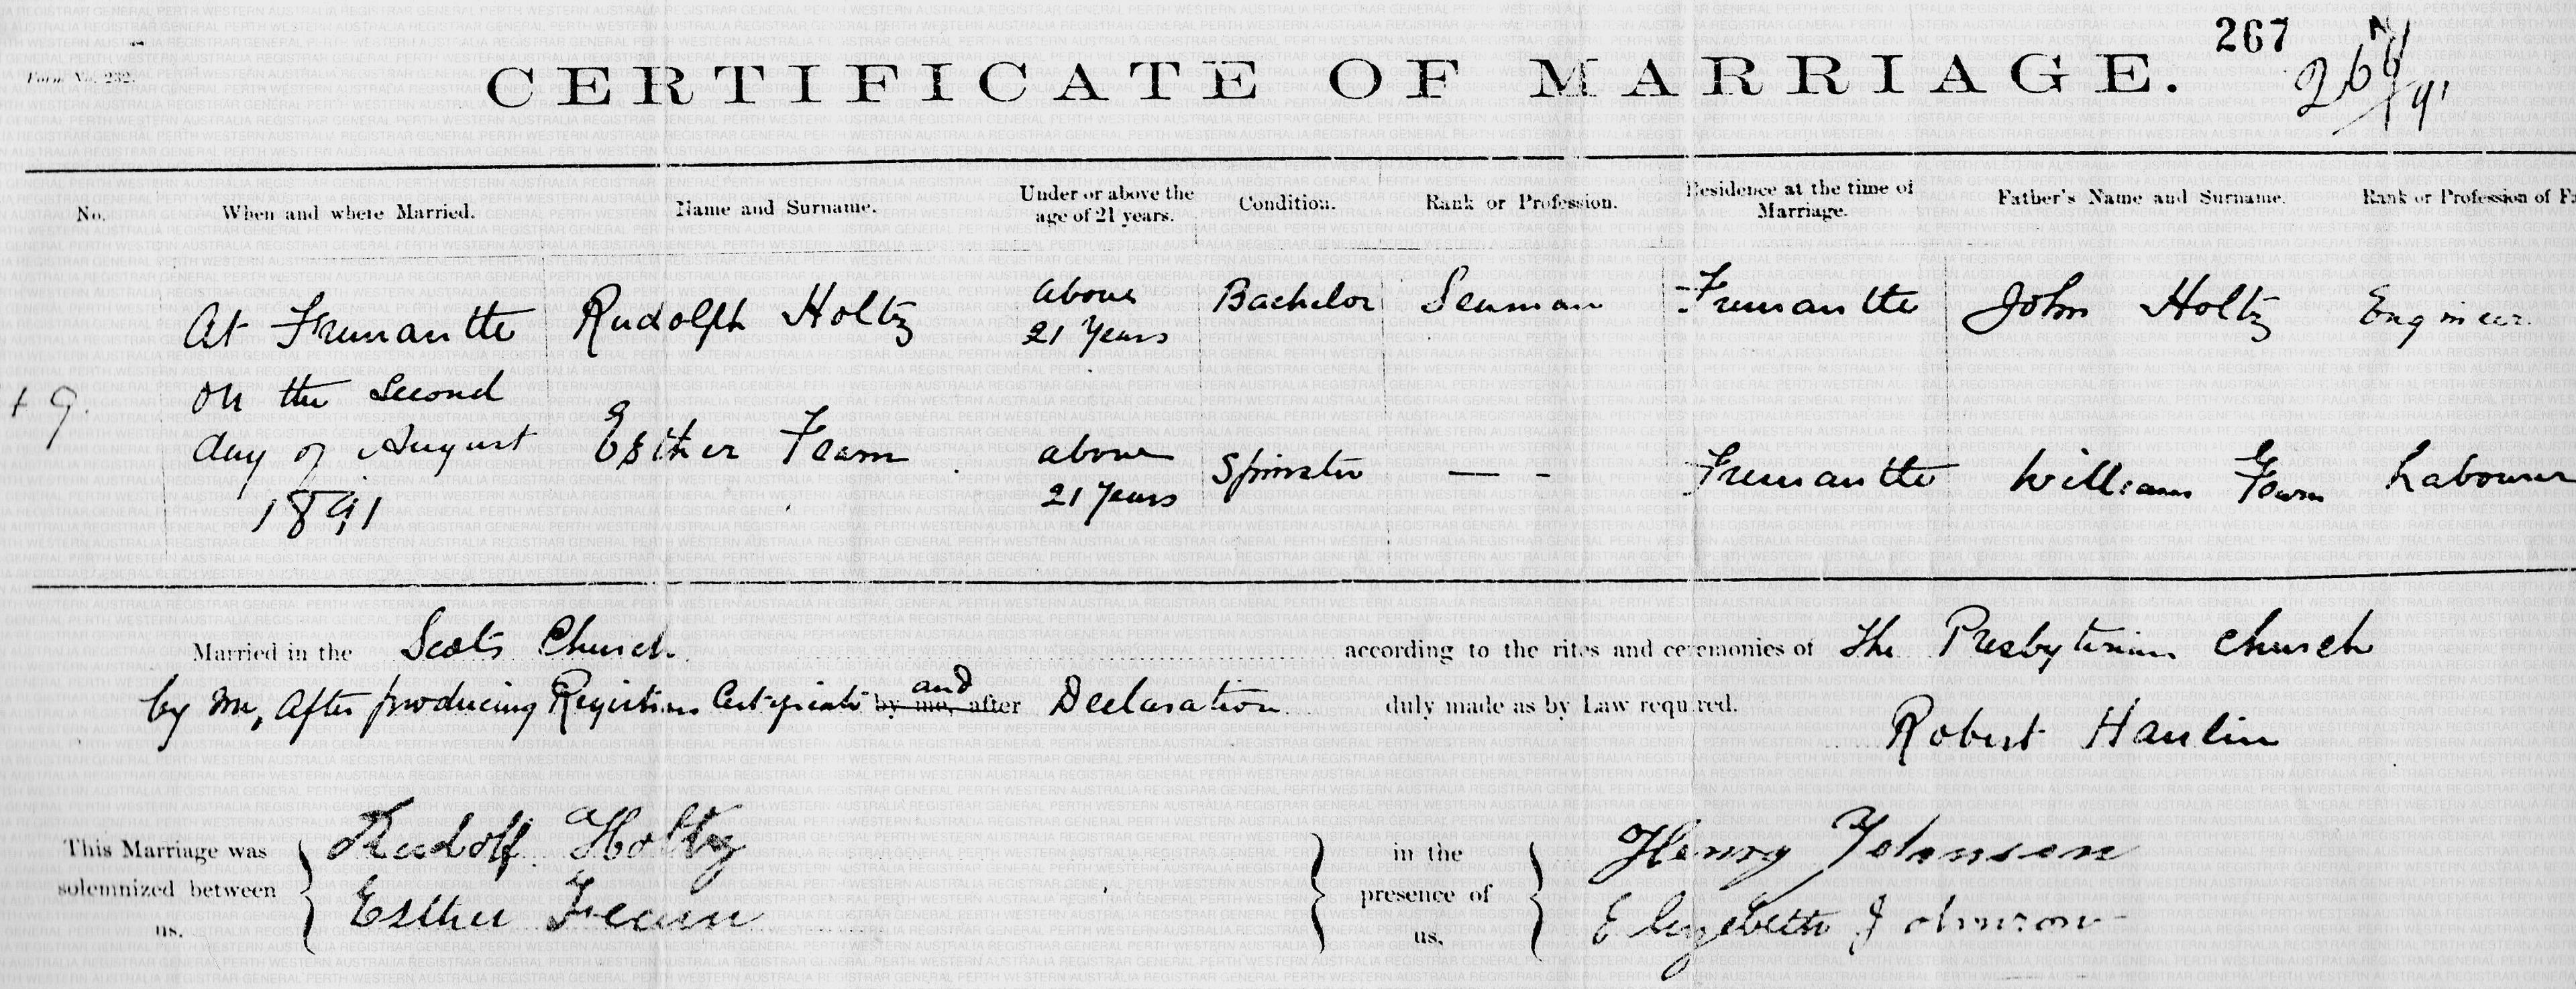 267
Form No. 232.
CERTIFICATE OF MARRIAGE.
267/91
No. When and where Married. Name and Surname. Under or above the age of 21 years. Condition. Rank or Profession. Residence at the time of Marriage. Father's Name and Surname. Rank or Profession of Fa
At Fremantle Rudolph Holtz above 21 Years Bachelor Seaman Fremantle John Holtz Engineer.
on the Second
9.
day of August Esther Fearn above 21 Years Spinster — - Fremantle William Fearn Labourer
1891
Married in the Scots Church according to the rites and ceremonies of The Presbyterian Church
by me, After producing Registrars Certificate by me, and after Declaration duly made as by Law required.
Robert Hanlin
This Marriage was solemnized between us. } Rudolf Holtz } in the presence of us, { Henry Johnson
Esther Fearn Elizebeth Johnson